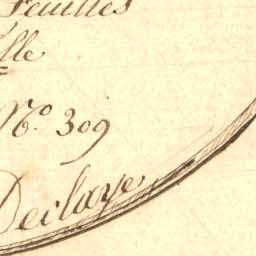 Feuilles
lle
No. 309
Declaye